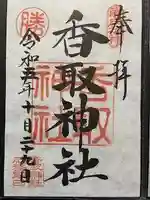 奉拝
香取神社
令和五年十月二十九日
勝
香取
神社